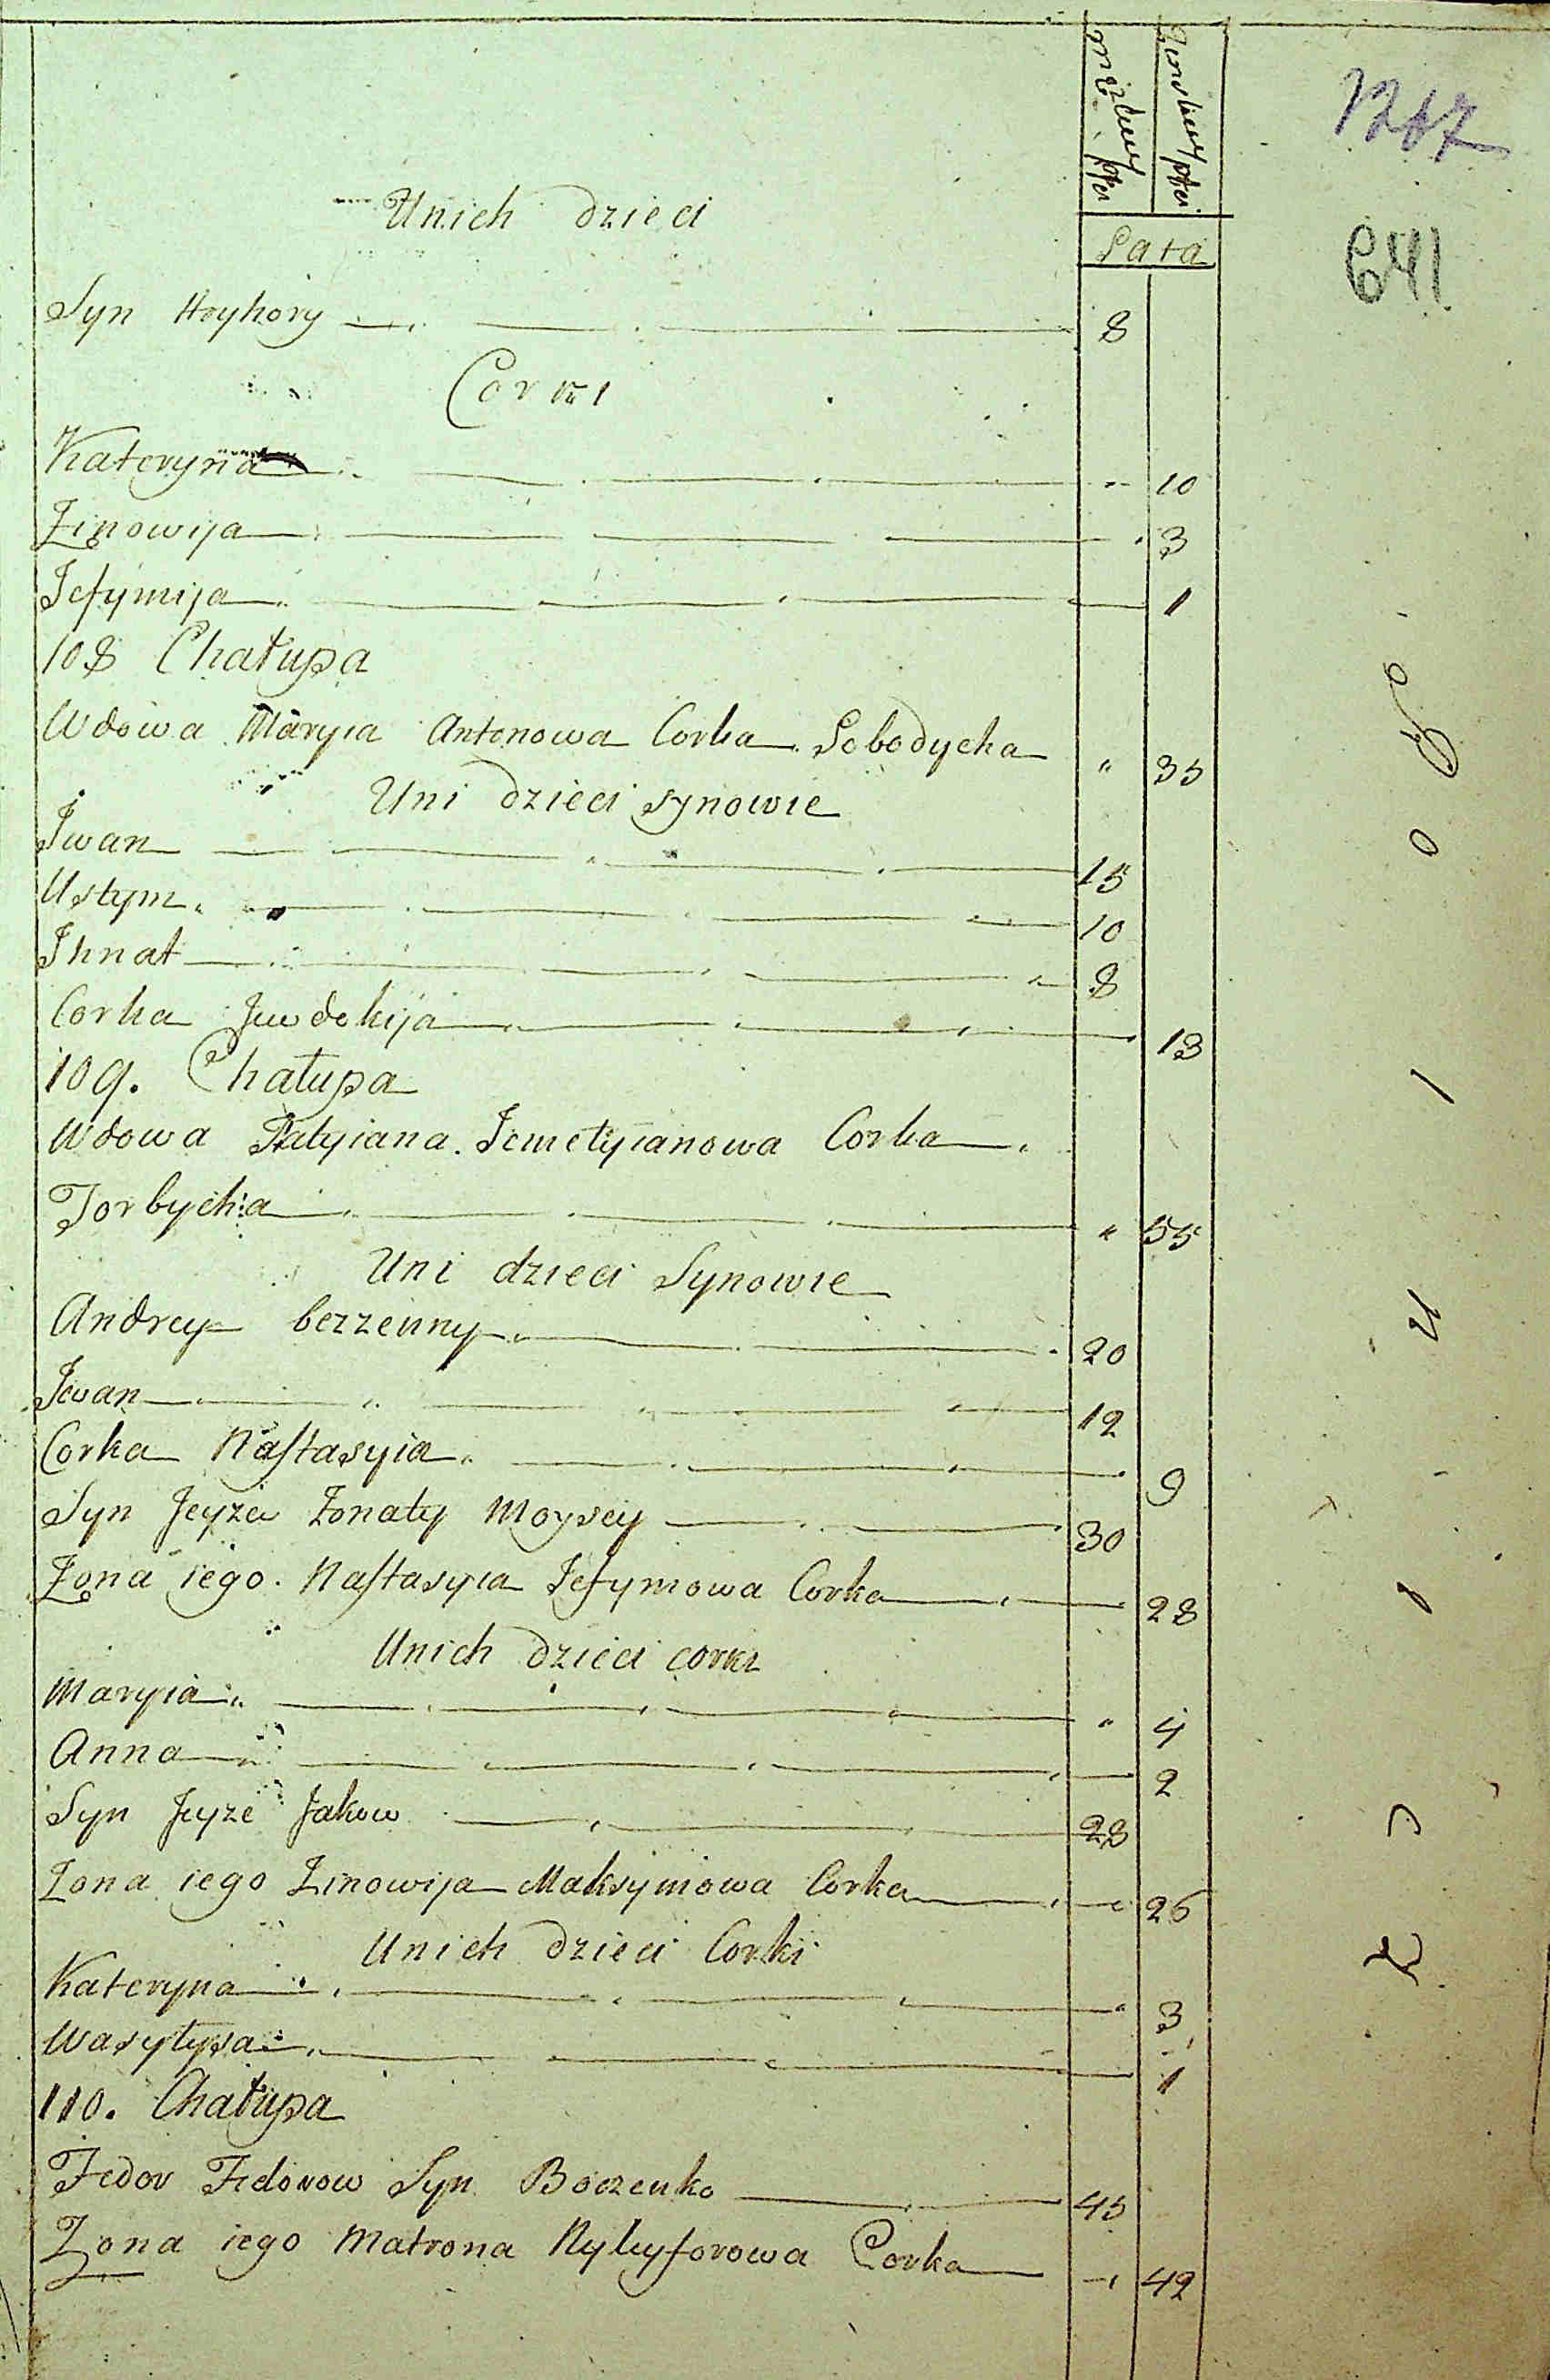 męzkiey płci
Żenskiey płci
1267
641
Unich dzieci
Lata
Syn Hryhory 8
Corki
Kateryna 10
Zinowija 3
Jefymija 1
108 Chałupa
Wdowa Maryia Antonowa Corka Lobodycha " 35
Uni dzieci synowie
Jwan 15
Ustym 10
Jhnat 8
Corka Juwdokija 13
109. Chałupa
Wdowa Tatyiana. Jemelyianowa Corka
Torbycha " 55
Uni dzieci Synowie
Andrey bezzenny 20
Jwan 12
Corka Nastasyia 9
Syn Jeyże Żonaty Moysey 30
Żona iego. Nastasyia Jefymowa Corka 28
Unich dzieci corki
Maryia " 4
Anna 2
Syn Jeyże Jakow 28
Żona iego Zinowija Maksymowa Corka 26
Unich dzieci Corki
Kateryna " 3
Wasyłysa 1
110. Chałupa
Fedor Fedorow Syn Boczenko 45
Żona iego Matrona Nykyforowa Corka 42